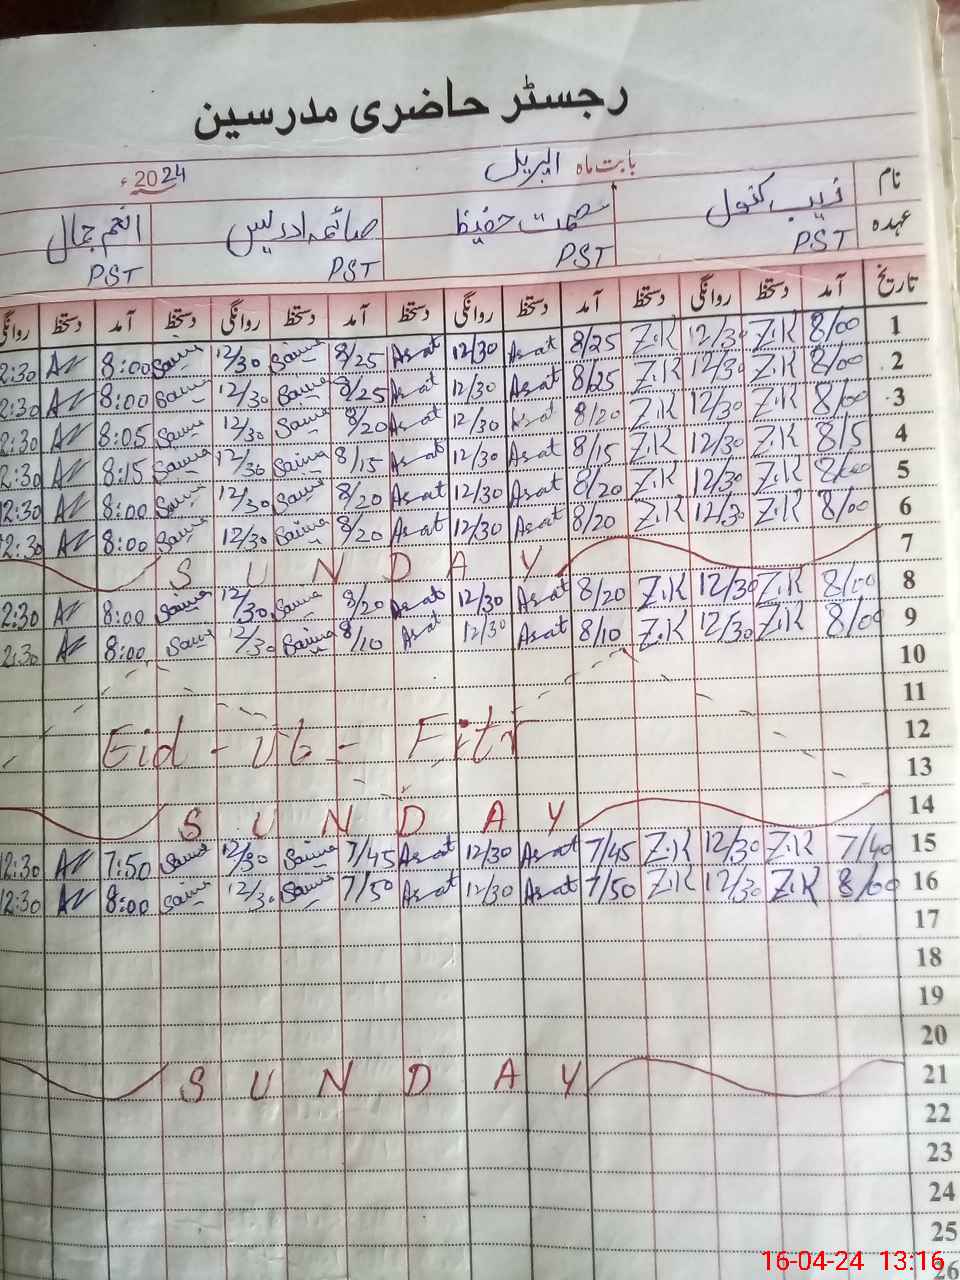 رجسٹر حاضری مدرسین
بابت ماہ اپریل 2024ء
نام زیب کنول عصمت حفیظ صائمہ ادریس انعم جمال
عہدہ PST PST PST PST
تاریخ آمد دستخط روانگی دستخط آمد دستخط روانگی دستخط آمد دستخط روانگی دستخط آمد دستخط روانگی
1 8/00 Z.K 12/30 Z.K 8/25 Asat 12/30 Asat 8/25 Saima 12/30 Saima 8:00 AZ 2:30
2 8/00 Z.K 12/30 Z.K 8/25 Asat 12/30 Asat 8/25 Saima 12/30 Saima 8:00 AZ 2:30
3 8/00 Z.K 12/30 Z.K 8/20 Asat 12/30 Asat 8/20 Saima 12/30 Saima 8:05 AZ 2:30
4 8/15 Z.K 12/30 Z.K 8/15 Asat 12/30 Asat 8/15 Saima 12/30 Saima 8:15 AZ 2:30
5 8/00 Z.K 12/30 Z.K 8/20 Asat 12/30 Asat 8/20 Saima 12/30 Saima 8:00 AZ 12:30
6 8/00 Z.K 12/30 Z.K 8/20 Asat 12/30 Asat 8/20 Saima 12/30 Saima 8:00 AZ 12:30
7 SUNDAY
8 8/00 Z.K 12/30 Z.K 8/20 Asat 12/30 Asat 8/20 Saima 12/30 Saima 8:00 AZ 2:30
9 8/00 Z.K 12/30 Z.K 8/10 Asat 12/30 Asat 8/10 Saima 12/30 Saima 8:00 AZ 2:30
10
11
12 Eid - Ul - Fitr
13
14 SUNDAY
15 7/40 Z.K 12/30 Z.K 7/45 Asat 12/30 Asat 7/45 Saima 12/30 Saima 7:50 AZ 12:30
16 8/00 Z.K 12/30 Z.K 7/50 Asat 12/30 Asat 7/50 Saima 12/30 Saima 8:00 AZ 12:30
17
18
19
20
21 SUNDAY
22
23
24
25
26
16-04-24 13:16